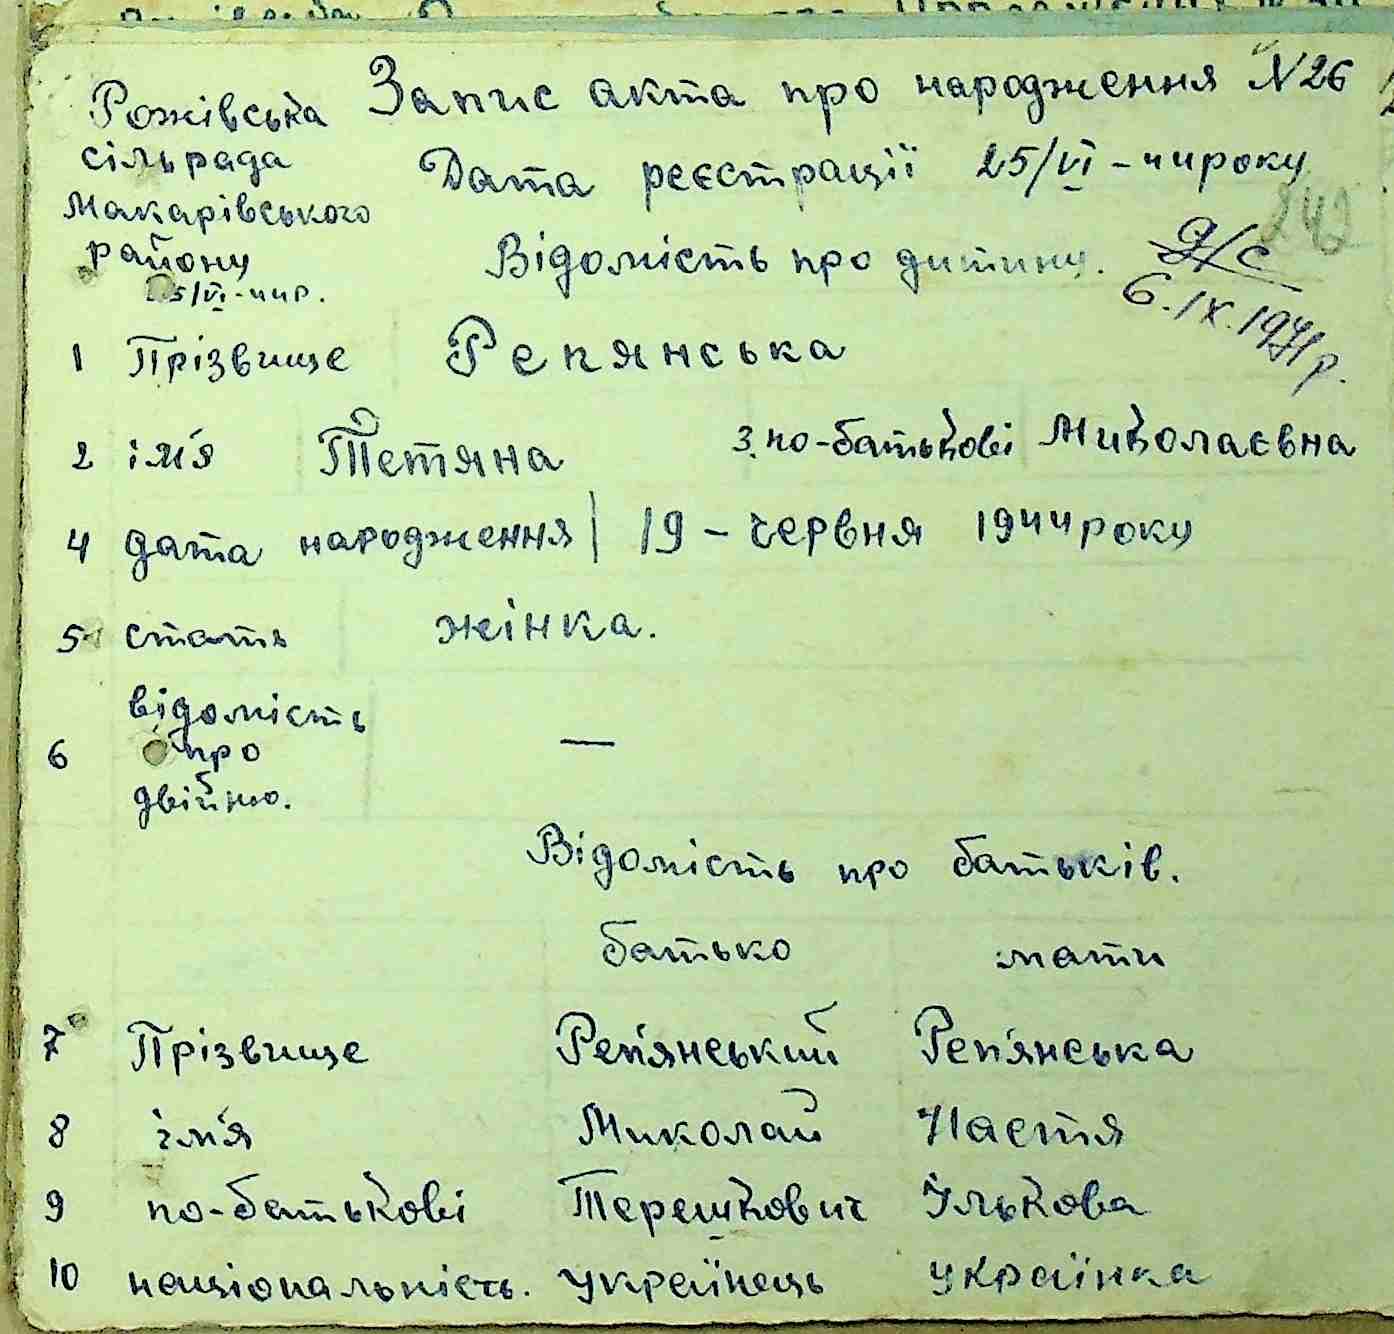 Рожівська
сільрада
Макарівського
району
25/VI-44р.
Запис акта про народження N26
Дата реєстрації 25/VI-44року
Відомість про дитину.
Д/С
6.IX.1971р.
242
1 Прізвище Репянська
2 ім'я Тетяна 3. по-батькові Миколаєвна
4 дата народження 19 – червня 1944 року
5 стать жінка.
6 відомість про двійню. —
Відомість про батьків.
батько мати
7 Прізвище Реп'янський Реп'янська
8 ім'я Миколай Настя
9 по-батькові Терешкович Ількова
10 національність. українець українка